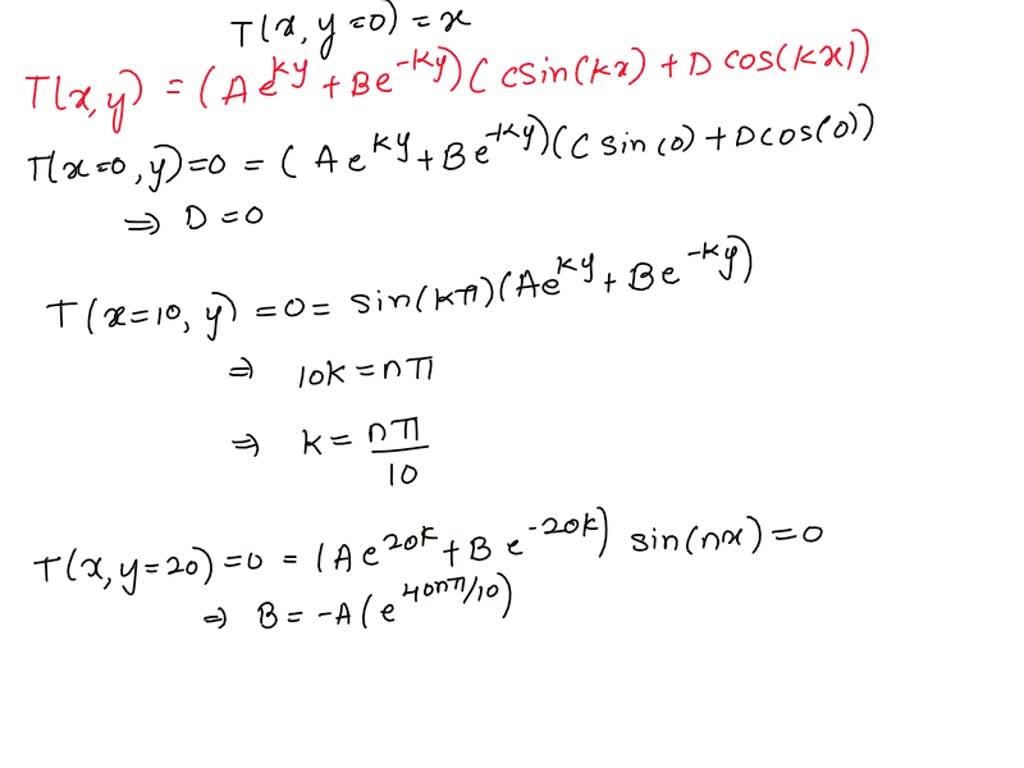 T(x, y=0) = x
T(x,y) = (Ae^{ky} + Be^{-ky})(C sin(kx) + D cos(kx))
T(x=0, y)=0 = (Ae^{ky} + Be^{-ky})(C sin(0) + D cos(0))
⇒ D = 0
T(x=10, y) = 0 = sin(kπ)(Ae^{ky} + Be^{-ky})
⇒ 10k = nπ
⇒ k = nπ/10
T(x, y=20) = 0 = (Ae^{20k} + Be^{-20k}) sin(nx) = 0
⇒ B = -A(e^{40nπ/10})